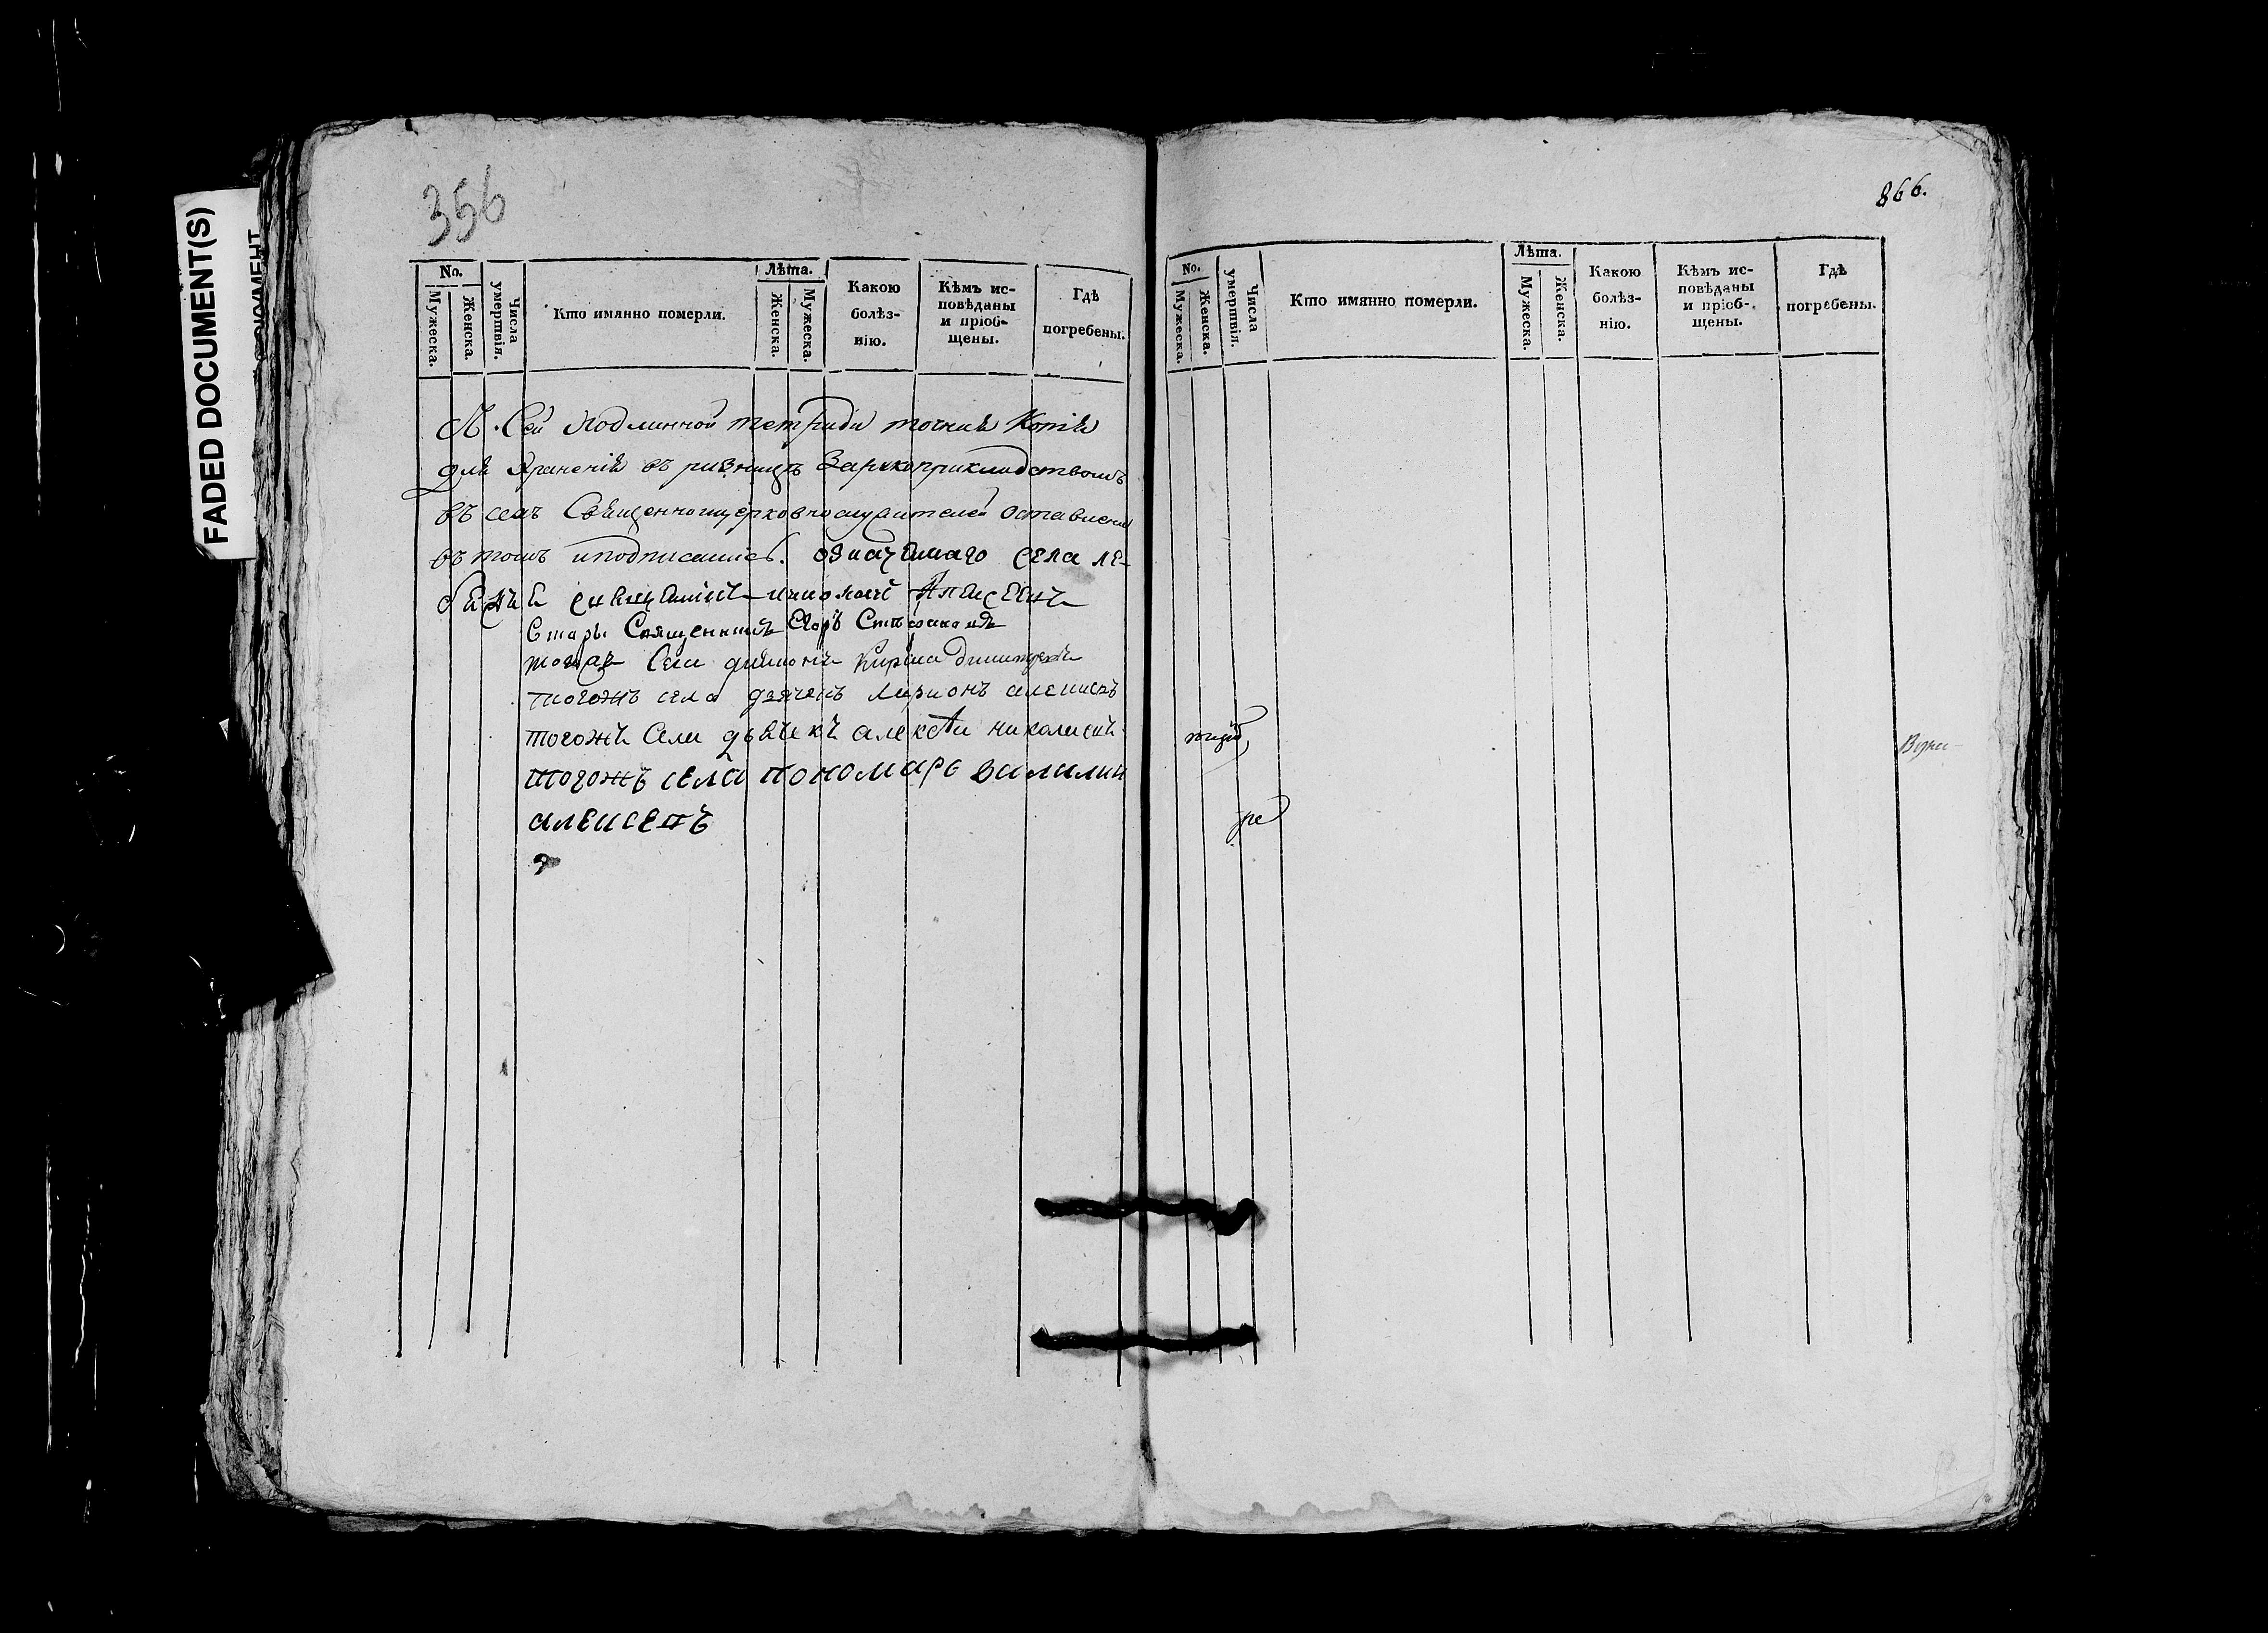 FADED DOCUMENT(S)
356
No.
Мужеска.
Женска.
Числа умертвія.
Кто имянно померли.
Лѣта.
Женска.
Мужеска.
Какою болѣз-
нію.
Кѣмъ ис-
повѣданы
и пріоб-
щены.
Гдѣ
погребены.
Сей подлинной тетради точная Копія
для Храненія въ ризницѣ Зарукоприкладствомъ
въ селѣ Священноцерковнослужителей оставлена
въ томъ иподписались. означеннаго села ле-
священникъ Алексеевъ
Священникъ Егоръ Стефановъ
тогожъ Села Кирила
тогожъ села дьячекъ Ларионъ алексеевъ
тогожъ Села дьячекъ алексѣи николаевъ
тогожъ села пономарь василии
алексеевъ
866.
No.
Мужеска.
Женска.
Числа умертвія.
Кто имянно померли.
Лѣта.
Мужеска.
Женска.
Какою
болѣз-
нію.
Кѣмъ ис-
повѣданы
и пріоб-
щены.
Гдѣ
погребены.